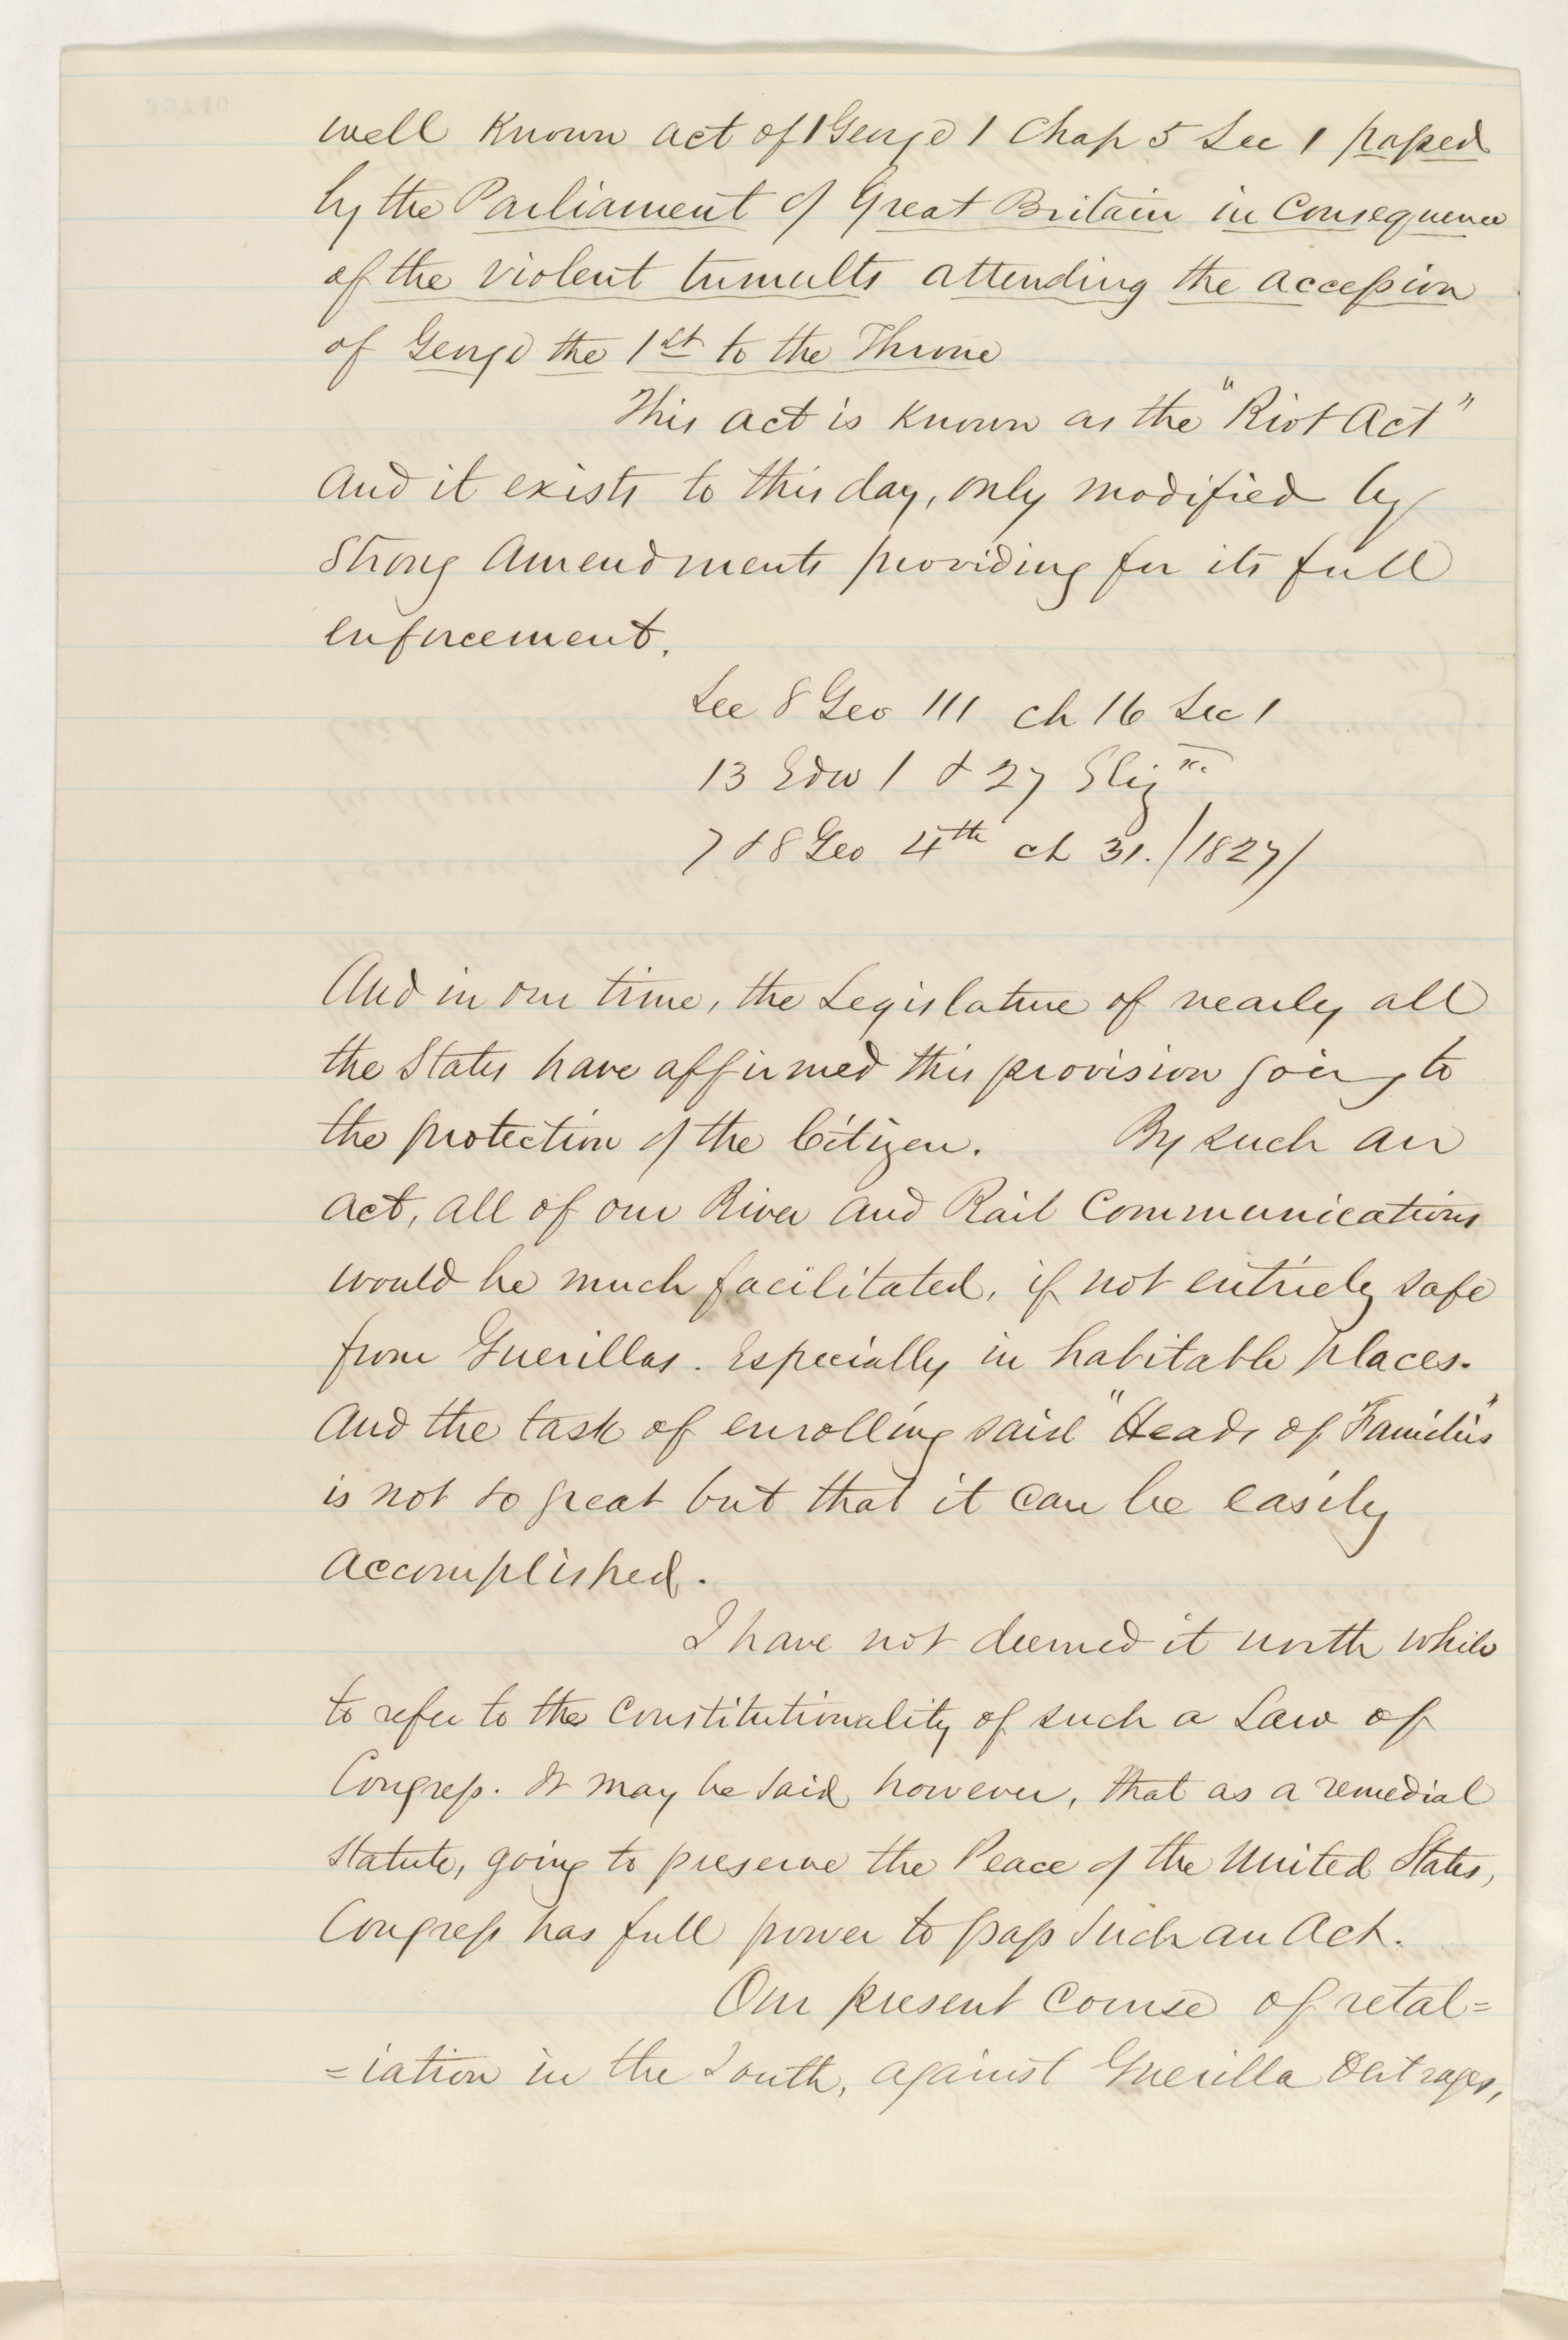 well Known act of 1 George 1 Chap 5 Sec 1 passed
by the Parliament of Great Britain in Consequence
of the violent tumults attending the accession
of George the 1st to the Throne
This act is Known as the "Riot Act"
And it exists to this day, only modified by
Strong Amendments providing for its full
enforcement.
See 8 Geo 111 ch 16 Sec 1
13 Edw 1 & 27 Eliz
7 & 8 Geo 4th ch 31. /1827/
And in our time, the Legislature of nearly all
the States have affirmed this provision going to
the protection of the Citizen. By such an
act, all of our River and Rail Communications
would be much facilitated, if not entirely safe
from Guerillas. Especially in habitable places.
And the task of enrolling said "Heads of Families"
is not so great but that it can be easily
accomplished.
I have not deemed it worth while
to refer to the Constitutionality of such a Law of
Congress. It may be said however, that as a remedial
statute, going to preserve the Peace of the United States,
Congress has full power to pass such an Act.
Our present Course of retal=
=iation in the South, against Guerilla Outrages,